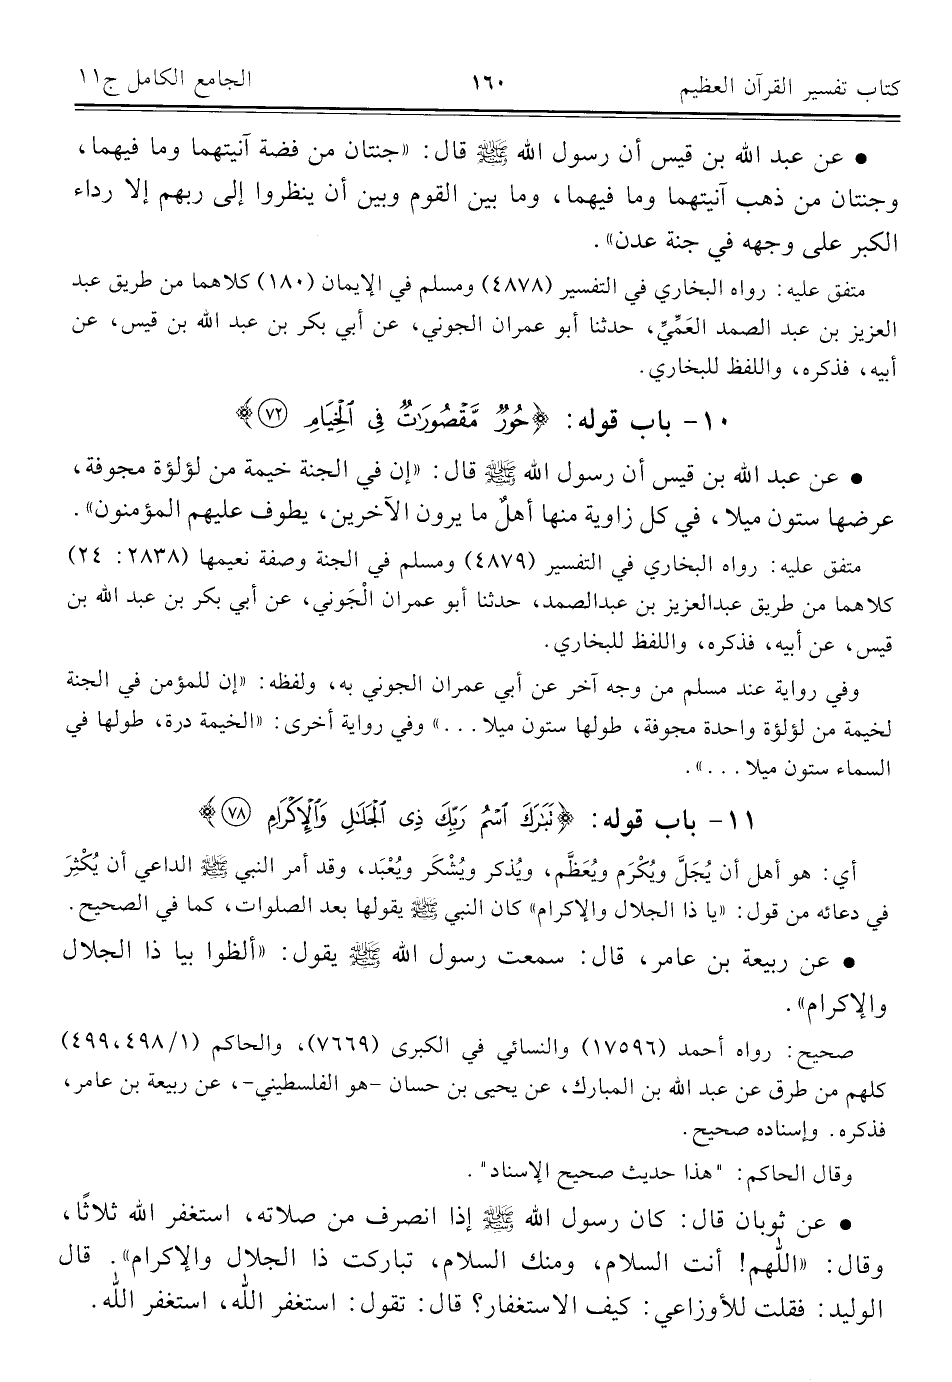 كتاب تفسير القرآن العظيم ١٦٠ الجامع الكامل ج١١
• عن عبد الله بن قيس أن رسول الله ﷺ قال: «جنتان من فضة آنيتهما وما فيهما،
وجنتان من ذهب آنيتهما وما فيهما، وما بين القوم وبين أن ينظروا إلى ربهم إلا رداء
الكبر على وجهه في جنة عدن».
متفق عليه: رواه البخاري في التفسير (٤٨٧٨) ومسلم في الإيمان (١٨٠) كلاهما من طريق عبد
العزيز بن عبد الصمد العَمِّيِّ، حدثنا أبو عمران الجوني، عن أبي بكر بن عبد الله بن قيس، عن
أبيه، فذكره، واللفظ للبخاري.
١٠- باب قوله: ﴿حُورٌ مَّقْصُورَاتٌ فِي الْخِيَامِ ٧٢﴾
• عن عبد الله بن قيس أن رسول الله ﷺ قال: «إن في الجنة خيمة من لؤلؤة مجوفة،
عرضها ستون ميلا، في كل زاوية منها أهلٌ ما يرون الآخرين، يطوف عليهم المؤمنون».
متفق عليه: رواه البخاري في التفسير (٤٨٧٩) ومسلم في الجنة وصفة نعيمها (٢٨٣٨: ٢٤)
كلاهما من طريق عبدالعزيز بن عبدالصمد، حدثنا أبو عمران الْجَوني، عن أبي بكر بن عبد الله بن
قيس، عن أبيه، فذكره، واللفظ للبخاري.
وفي رواية عند مسلم من وجه آخر عن أبي عمران الجوني به، ولفظه: «إن للمؤمن في الجنة
لخيمة من لؤلؤة واحدة مجوفة، طولها ستون ميلا...» وفي رواية أخرى: «الخيمة درة، طولها في
السماء ستون ميلا...».
١١- باب قوله: ﴿تَبَارَكَ اسْمُ رَبِّكَ ذِي الْجَلَالِ وَالْإِكْرَامِ ٧٨﴾
أي: هو أهل أن يُجَلَّ ويُكْرَم ويُعَظَّم، ويُذكر ويُشْكَر ويُعْبَد، وقد أمر النبي ﷺ الداعي أن يُكْثِرَ
في دعائه من قول: «يا ذا الجلال والإكرام» كان النبي ﷺ يقولها بعد الصلوات، كما في الصحيح.
• عن ربيعة بن عامر، قال: سمعت رسول الله ﷺ يقول: «ألظوا بيا ذا الجلال
والإكرام».
صحيح: رواه أحمد (١٧٥٩٦) والنسائي في الكبرى (٧٦٦٩)، والحاكم (١/٤٩٨،٤٩٩)
كلهم من طرق عن عبد الله بن المبارك، عن يحيى بن حسان -هو الفلسطيني-، عن ربيعة بن عامر،
فذكره. وإسناده صحيح.
وقال الحاكم: "هذا حديث صحيح الإسناد".
• عن ثوبان قال: كان رسول الله ﷺ إذا انصرف من صلاته، استغفر الله ثلاثًا،
وقال: «اللّهم! أنت السلام، ومنك السلام، تباركت ذا الجلال والإكرام». قال
الوليد: فقلت للأوزاعي: كيف الاستغفار؟ قال: تقول: استغفر الله، استغفر الله.